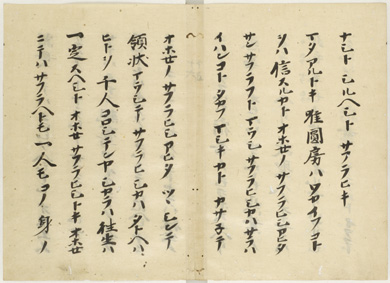 ナント シルヘシト サフラヒキ
マタ アルトキ 唯圓房ハ ワカイフコト
ヲハ 信スルカト オホセノ サフラヒシアヒタ
サンサフラフト マウシ サフラヒシカハ サラハ
イハンコト タカフマシキカト カサネテ
オホセノ サフラヒシアヒタ ツヽシンテ
領状 マウシテ サフラヒシカハ タトヘハ
ヒトヲ 千人 コロシテンヤ シカラハ 往生ハ
一定スヘシト オホセ サフラヒシトキ オホセ
ニテハ サフラヘトモ 一人モ コノ 身ノ